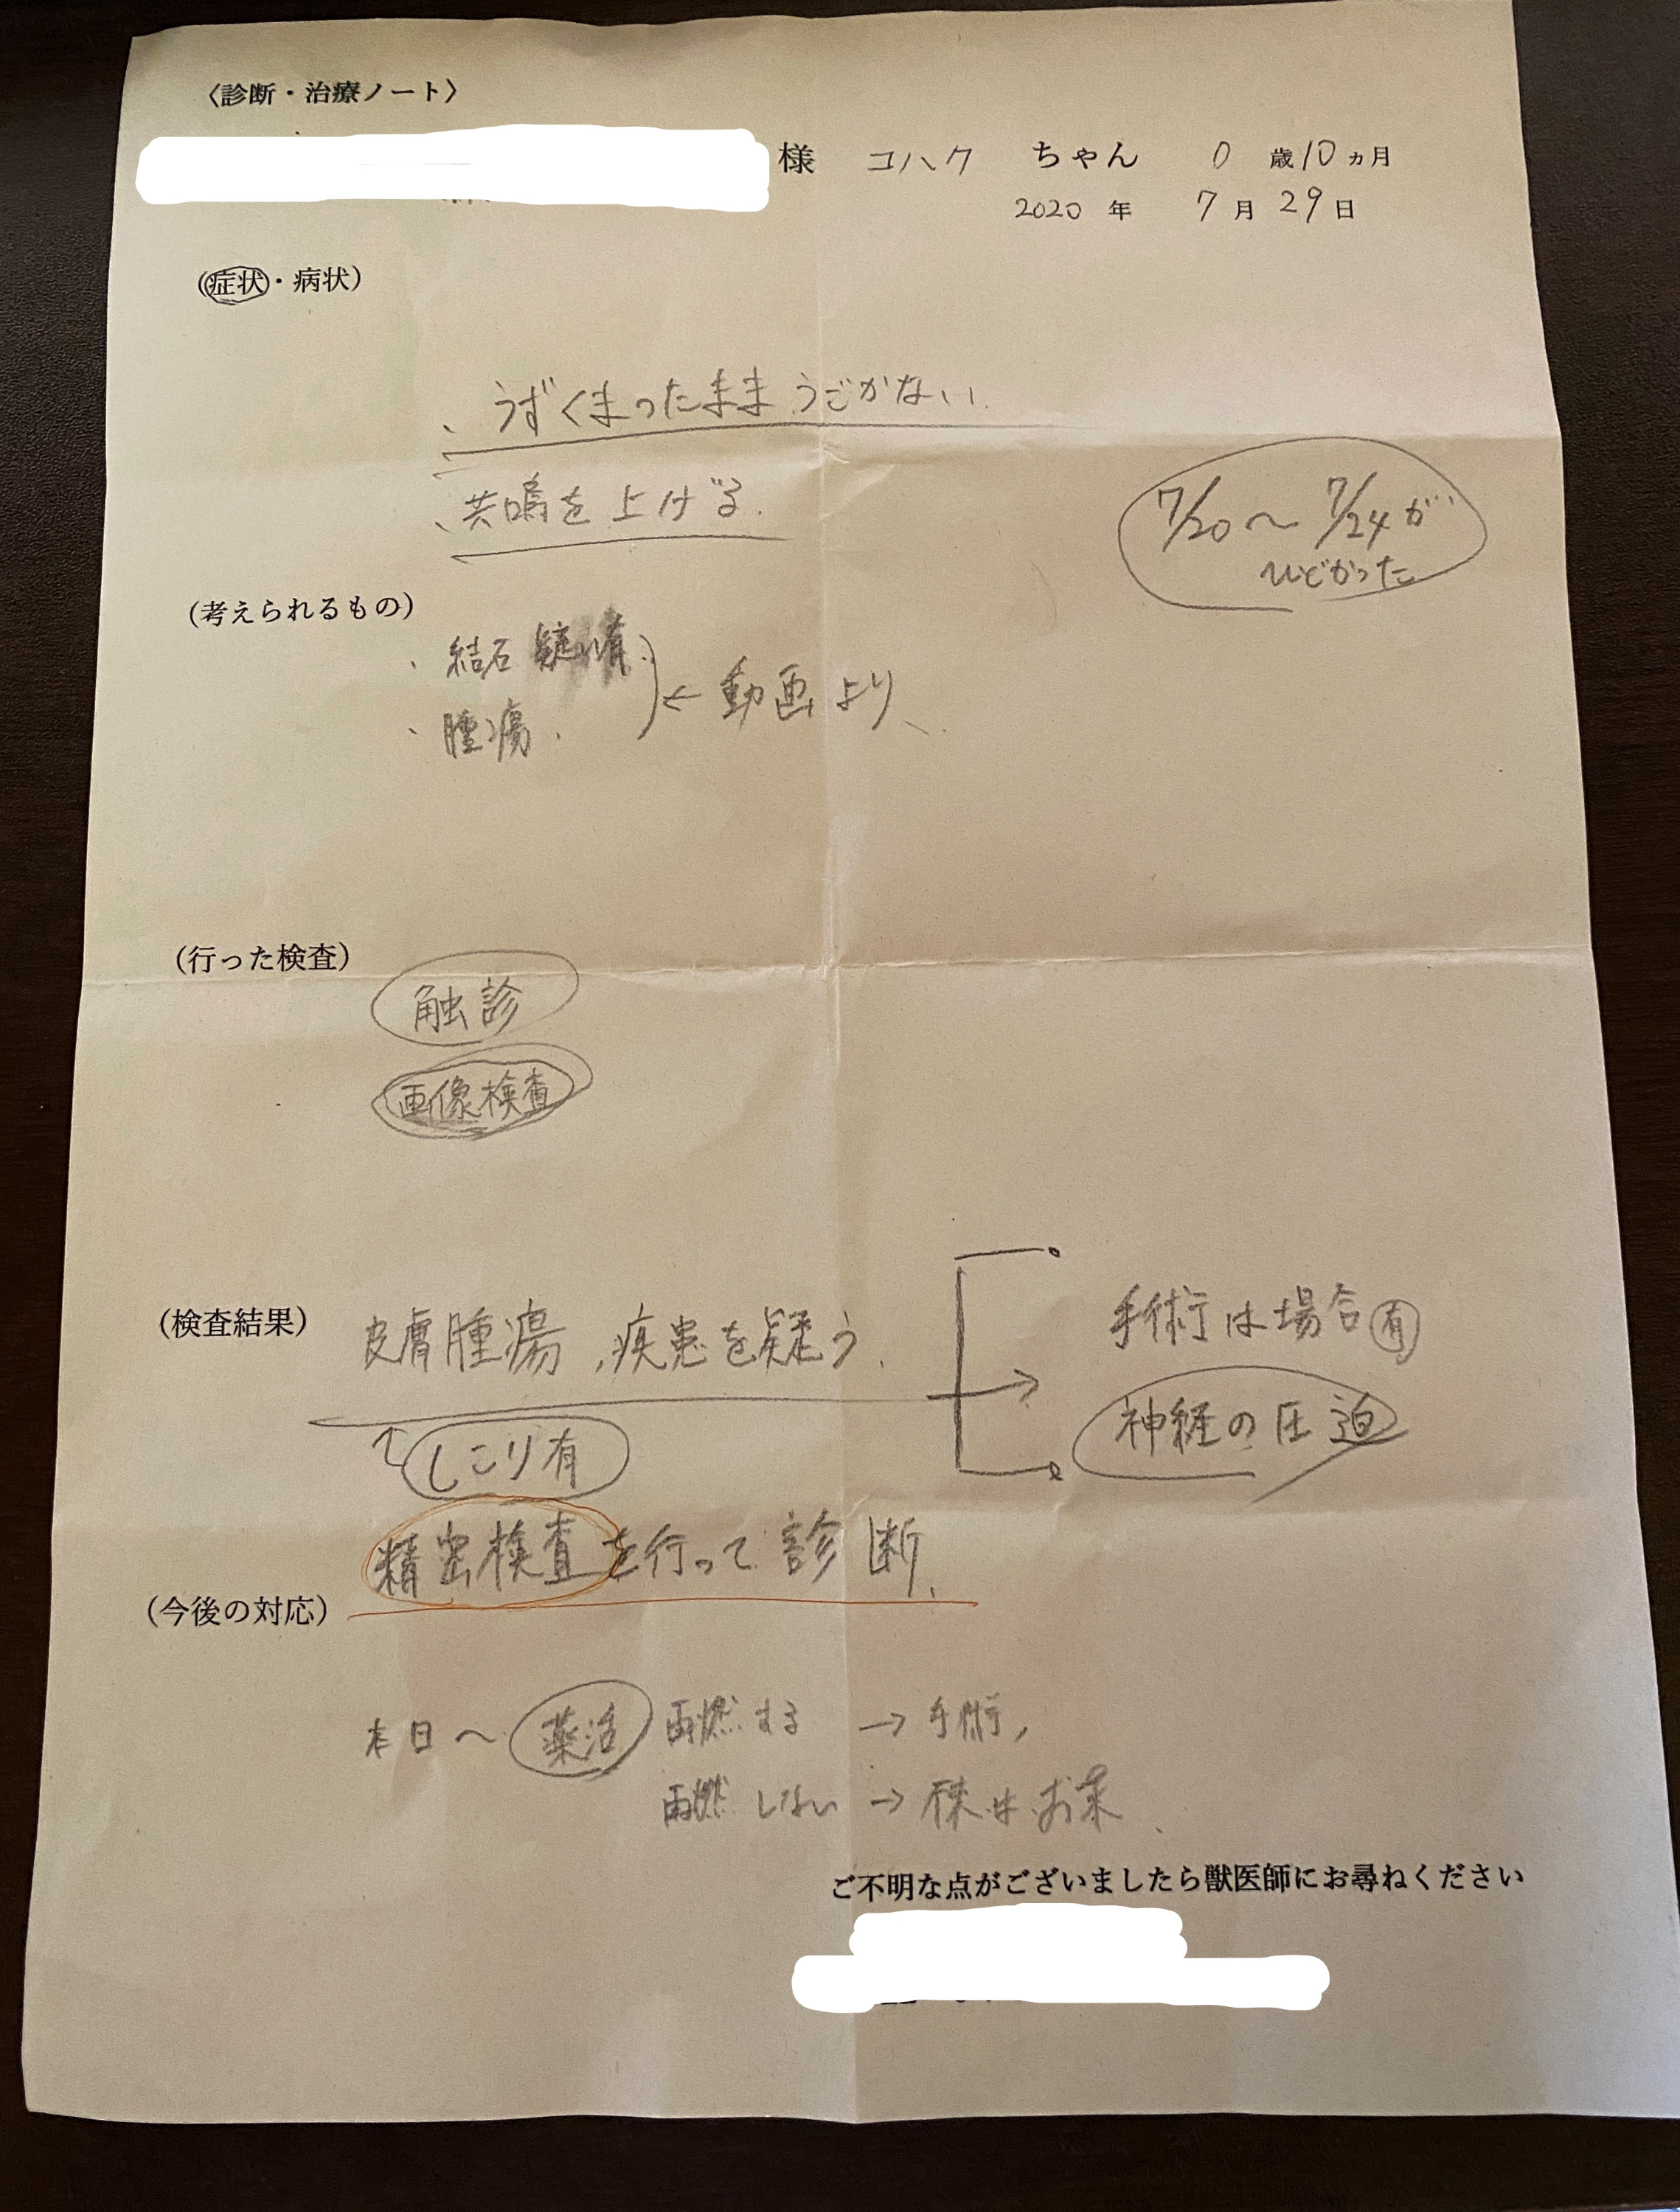 〈診断・治療ノート〉
様 コハク ちゃん 0 歳 10 ヵ月
2020 年 7 月 29 日
(症状・病状)
、うずくまったまま うごかない.
、共鳴を上げる.
7/20〜7/24が
ひどかった
(考えられるもの)
・結石 疑い有.
・腫瘍.
← 動画より、
(行った検査)
触診
画像検査
(検査結果) 皮膚腫瘍、疾患を疑う.
手術は場合有
神経の圧迫
しこり有
精密検査を行って診断.
(今後の対応)
本日〜 薬活 再燃する → 手術,
再燃しない → お薬.
ご不明な点がございましたら獣医師にお尋ねください